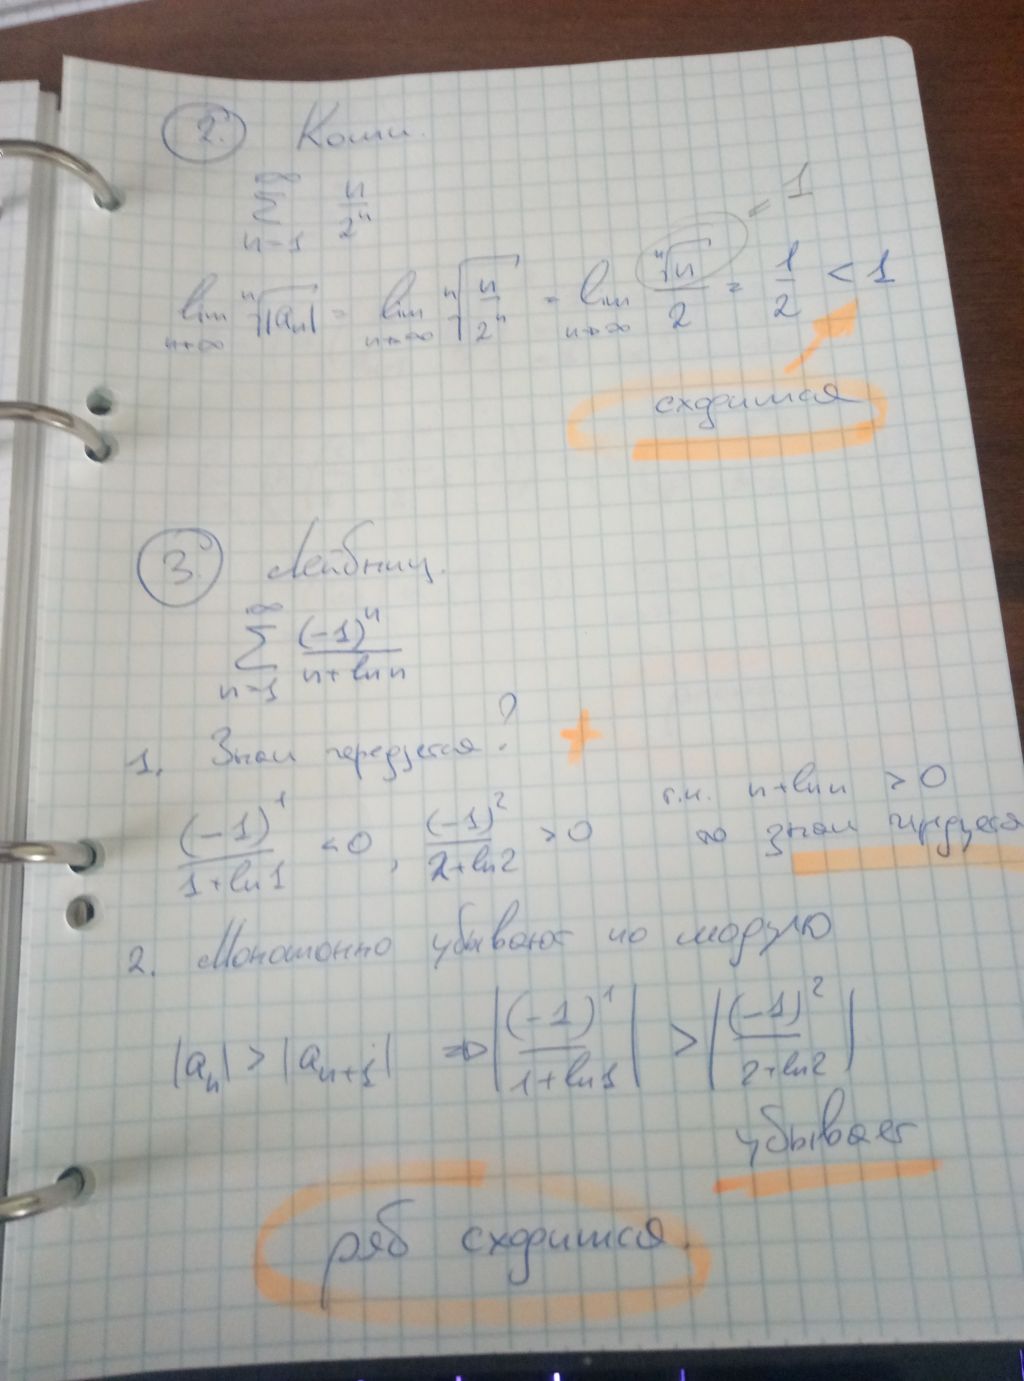 2. Коши.
∞
∑ n/2ⁿ
n=1
lim n→∞ ⁿ√|aₙ| = lim n→∞ ⁿ√(n/2ⁿ) = lim n→∞ ⁿ√n/2 = 1/2 < 1
= 1
сходится
3. Лейбниц.
∞
∑ (-1)ⁿ/(n+ln n)
n=1
1. Знак чередуется? +
(-1)¹/(1+ln1) < 0, (-1)²/(2+ln2) > 0
т.к. n+ln n > 0
то знак чередуется
2. Монотонно убывают по модулю
|aₙ| > |aₙ₊₁| ⇒ |(-1)¹/(1+ln1)| > |(-1)²/(2+ln2)|
убывает
ряд сходится.